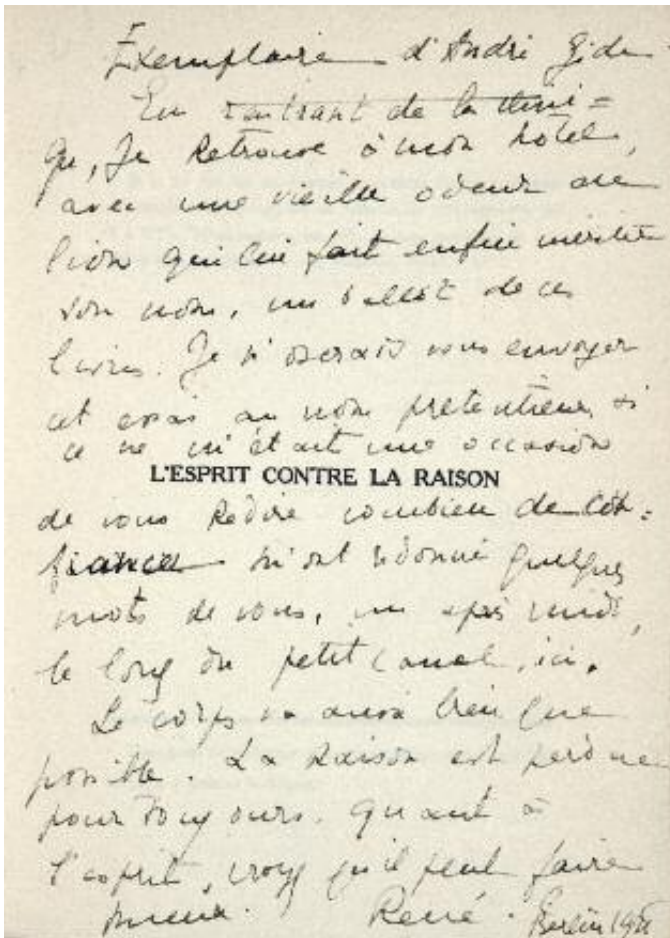 Exemplaire d'André Gide
En rentrant de la clini=
que, je retrouve à mon hôtel,
avec une vieille odeur de
lion qui lui fait enfin mériter
son nom, un ballot de ces
livres. Je n'oserais vous envoyer
cet essai au nom prétentieux, si
ce ne m'était une occasion
L'ESPRIT CONTRE LA RAISON
de vous redire combien de con=
fiance m'ont redonné quelques
mots de vous, un après midi,
le long du petit canal, ici.
Le corps va aussi bien que
possible. La Raison est perdue
pour toujours. Quant à
l'esprit, croyez qu'il peut faire
mieux. René. Berlin